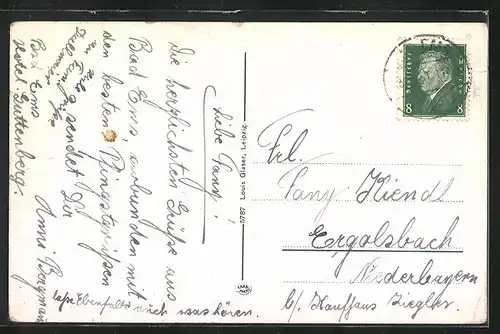 Liebe Fany!
Die herzlichsten Grüße aus
Bad Ems, verbunden mit
den besten Pfingstgrüßen
sendet Dir
Anni
Bad Ems
Hotel Guttenberg.
lass Ebenfalls auch was hören.
57872 Louis Glaser, Leipzig
Deutsches Reich
8 8
Frl.
Fany Kiendl
Ergolsbach
Niederbayern
b/ Kaufhaus Ziegler.